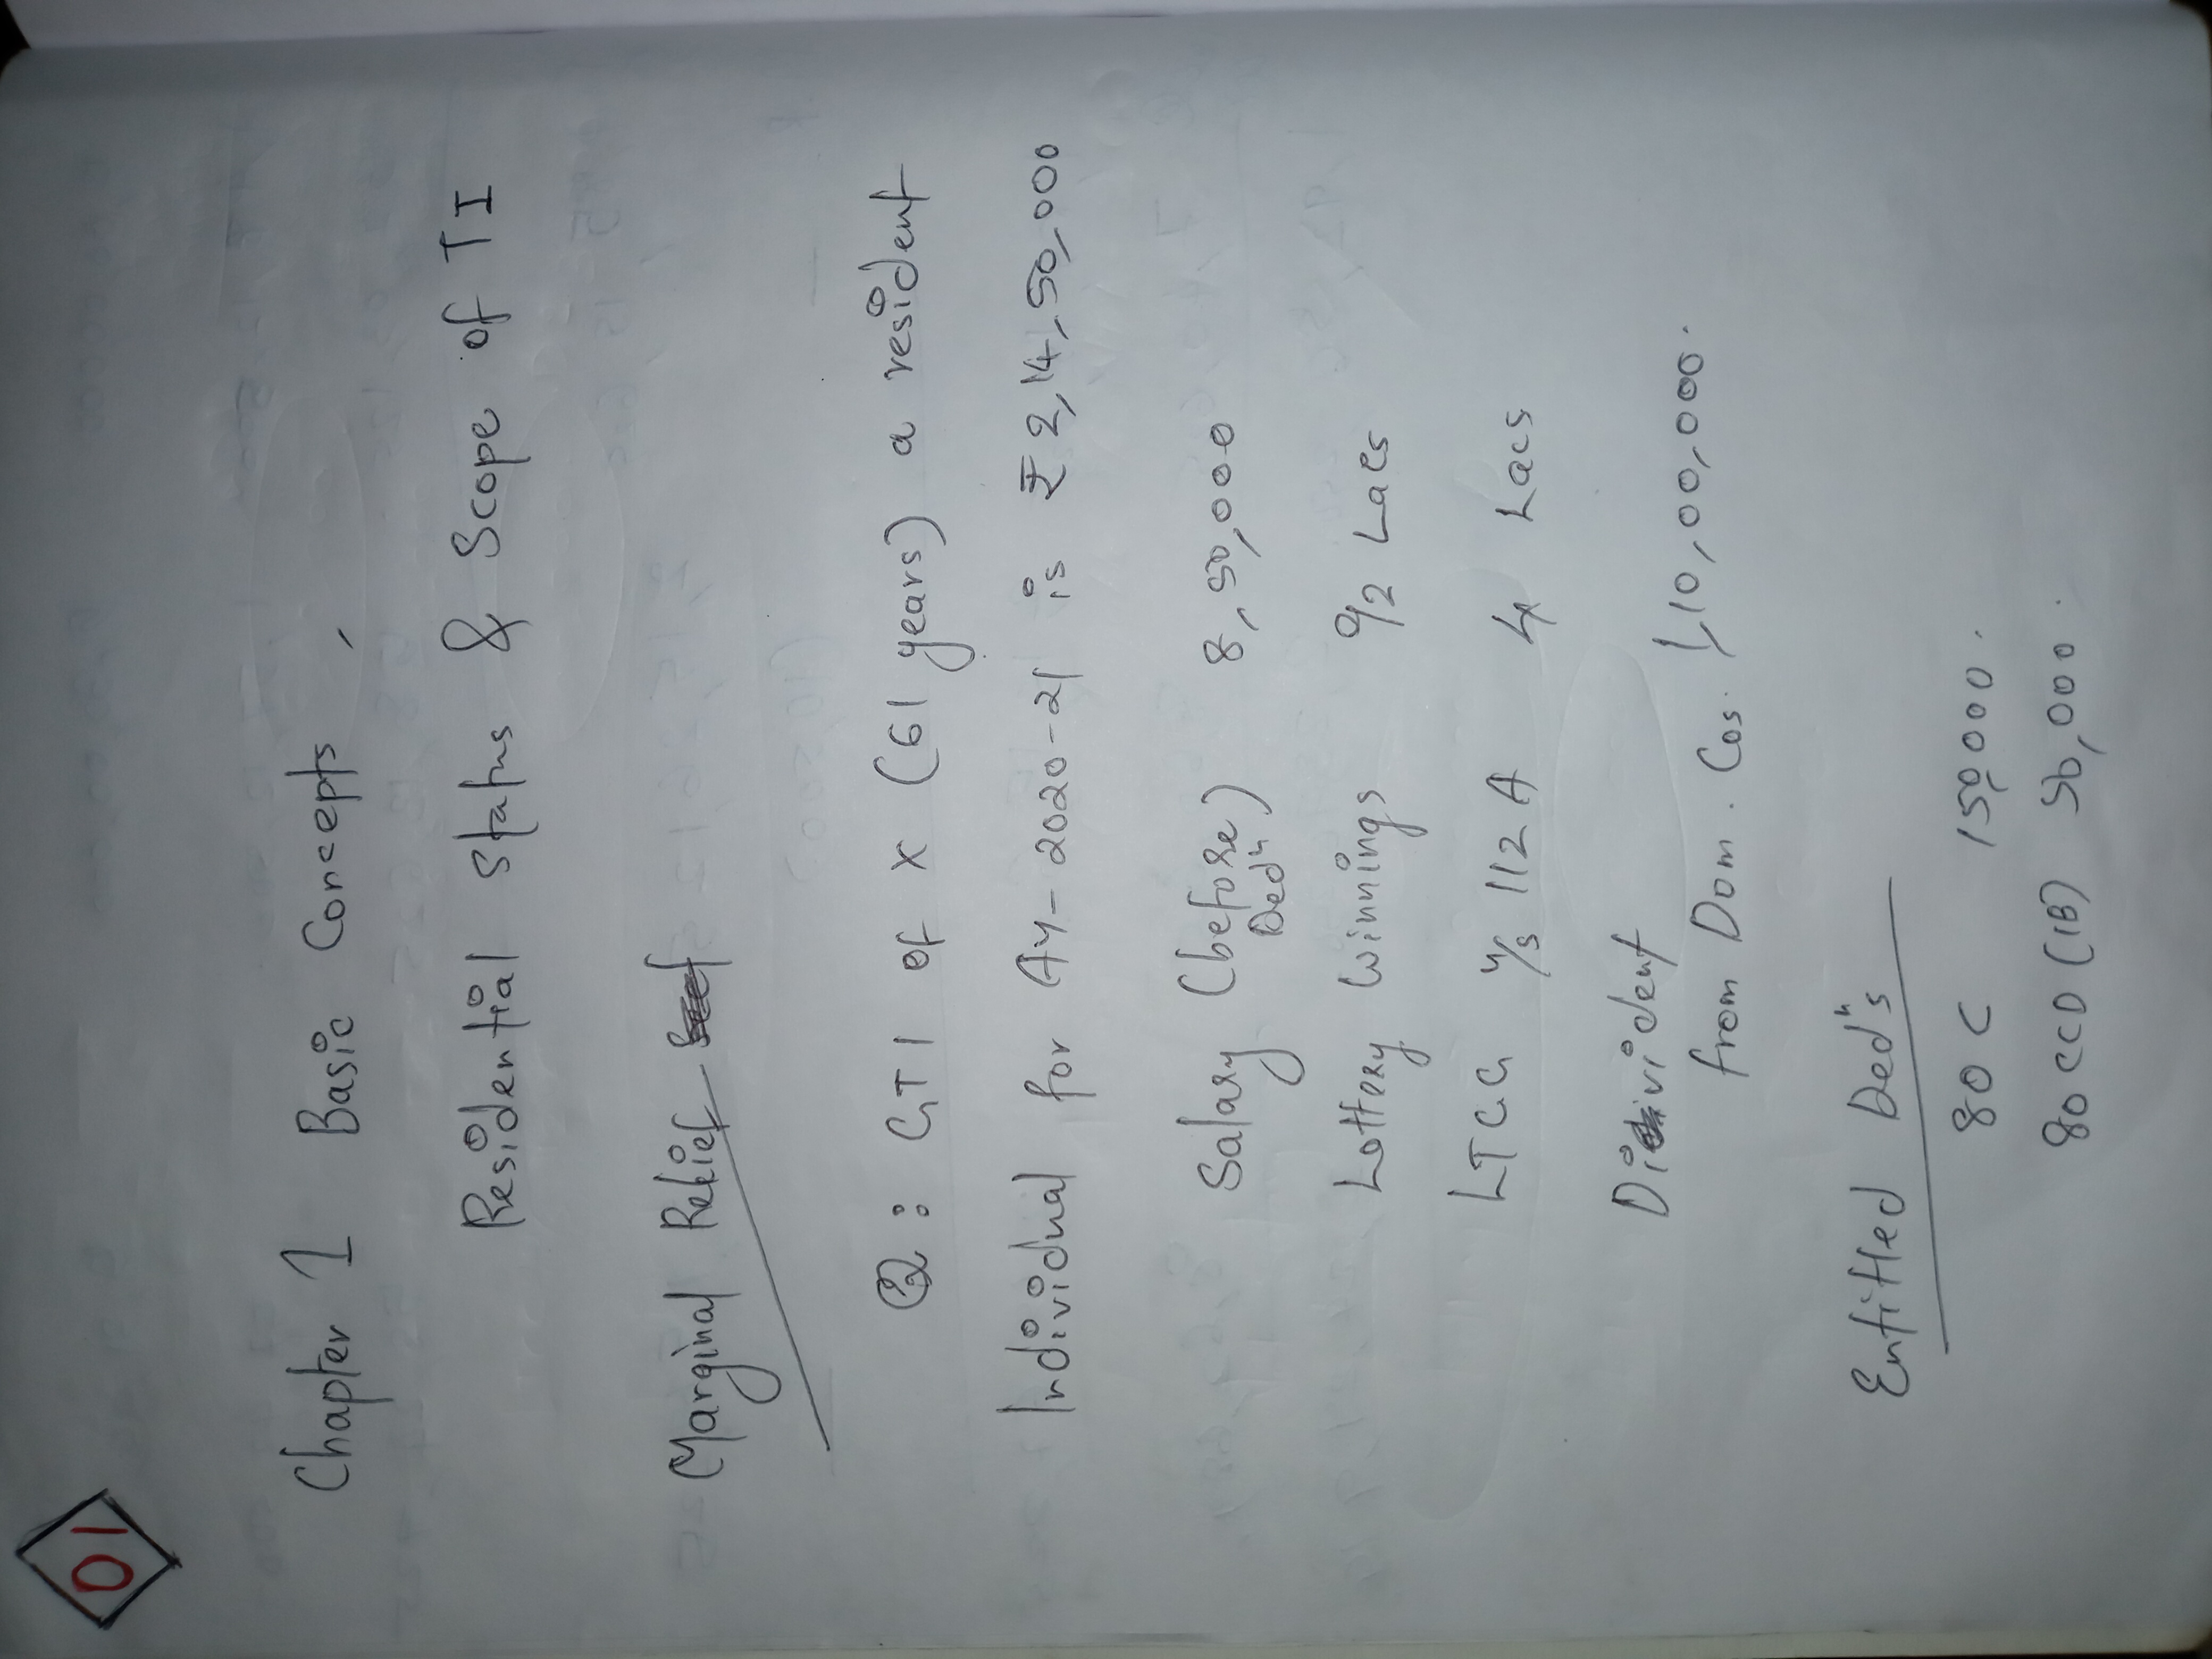 01
Chapter 1 Basic Concepts,
Residential Status & Scope of TI
Marginal Relief
Q: GTI of X (61 years) a resident
Individual for AY-2020-21 is ₹ 2,14,50,000
Salary (before Dedⁿ) 8,50,000
Lottery Winnings 92 Lacs
LTCG u/s 112A 4 Lacs
Dividend
from Dom. Cos. 1,10,00,000.
Entitled Dedⁿs
80 C 150000.
80 CCD (1B) 50,000.